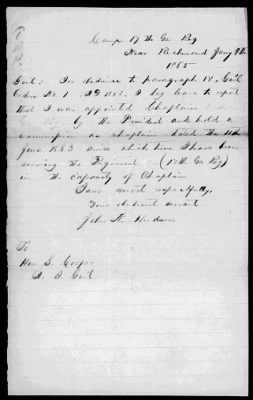 Camp 17th Ga Reg
Near Richmond Jany 9th
1865
Genl: In obedience to paragraph IV, Genl
Order No 1 I beg leave to report
that I was appointed Chaplain
by the President and hold a
commission as chaplain dated the 11th
June 1863 since which time I have been
serving the Regiment (17th Ga Reg)
in the capacity of Chaplain
I am most respectfully
Your obedient servt
John W. Hudson
To
Hon S. Cooper
Genl